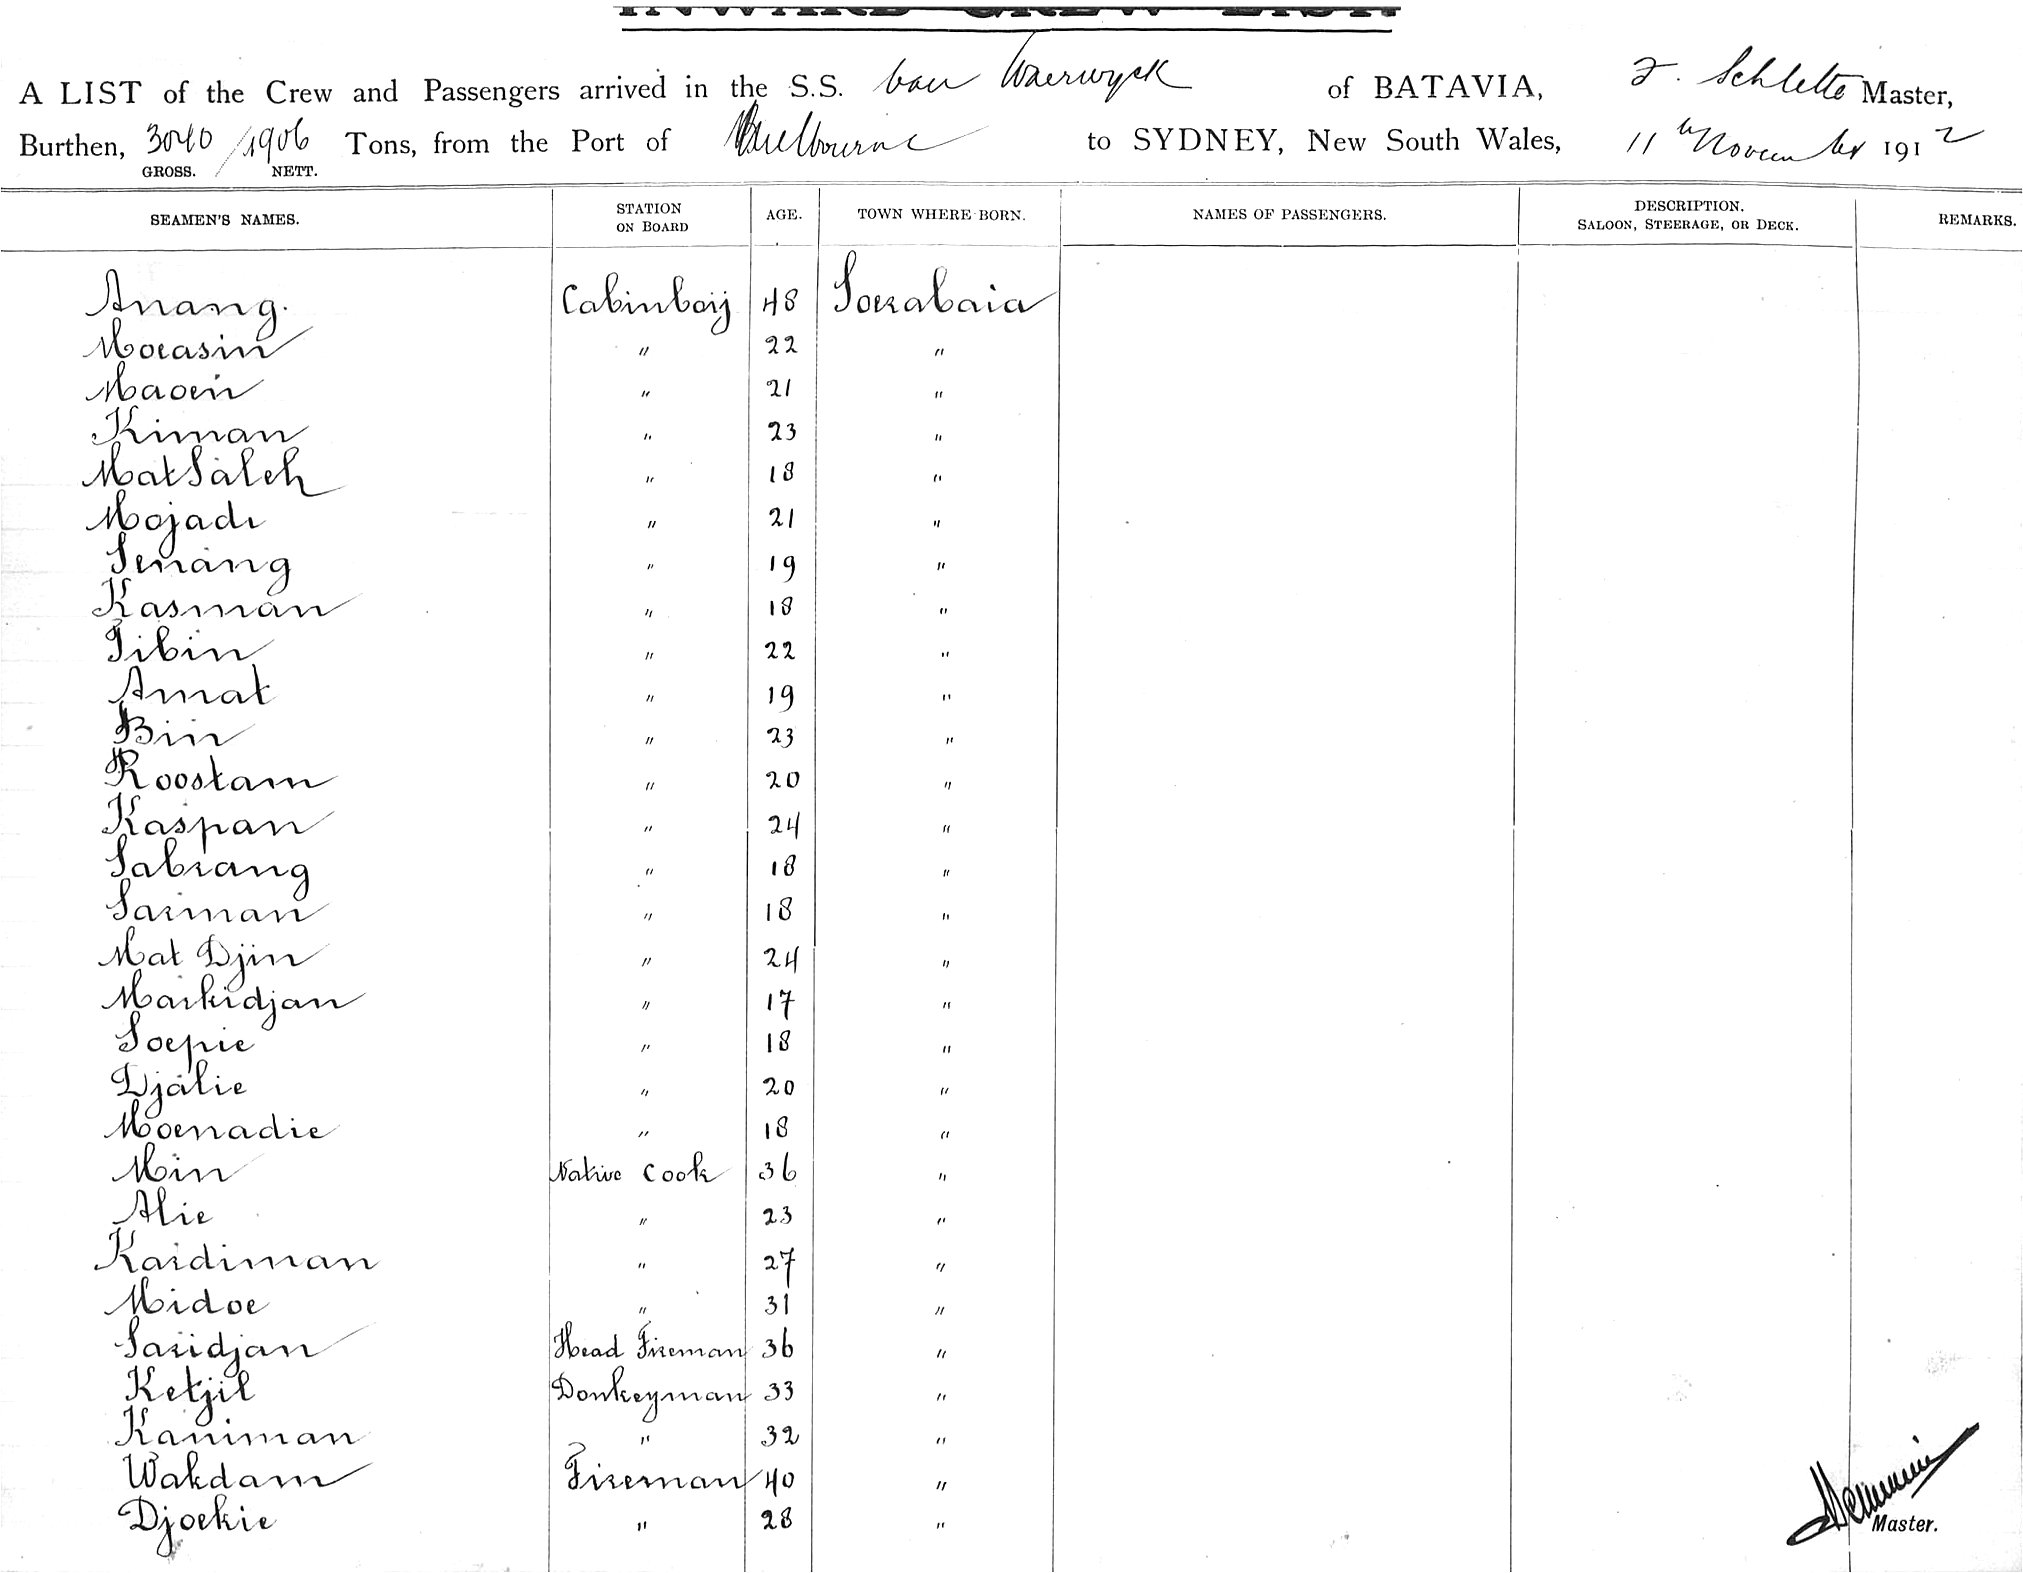 INWARD CREW LIST.
A LIST of the Crew and Passengers arrived in the S.S. van Waerwyck of BATAVIA, F. Schlette Master,
Burthen, 3040 / 1906 Tons, from the Port of Melbourne to SYDNEY, New South Wales, 11th November 1912
GROSS. NETT.
SEAMEN'S NAMES. STATION ON BOARD AGE. TOWN WHERE BORN. NAMES OF PASSENGERS. DESCRIPTION. SALOON, STEERAGE, OR DECK. REMARKS.
Anang. Cabinboij 48 Soerabaia
Moeasin " 22 "
Maoein " 21 "
Kiman " 23 "
Mat Saleh " 18 "
Mojadi " 21 "
Senang " 19 "
Kasman " 18 "
Tibin " 22 "
Amat " 19 "
Bin " 23 "
Roostam " 20 "
Kaspan " 24 "
Sabrang " 18 "
Sarman " 18 "
Mat Djin " 24 "
Markidjan " 17 "
Soepie " 18 "
Djalie " 20 "
Moenadie " 18 "
Min Native Cook 36 "
Alie " 23 "
Kardiman " 27 "
Midoe " 31 "
Saridjan Head Fireman 36 "
Ketjil Donkeyman 33 "
Kaniman " 32 "
Wakdam Fireman 40 "
Djoekie " 28 "
Master.